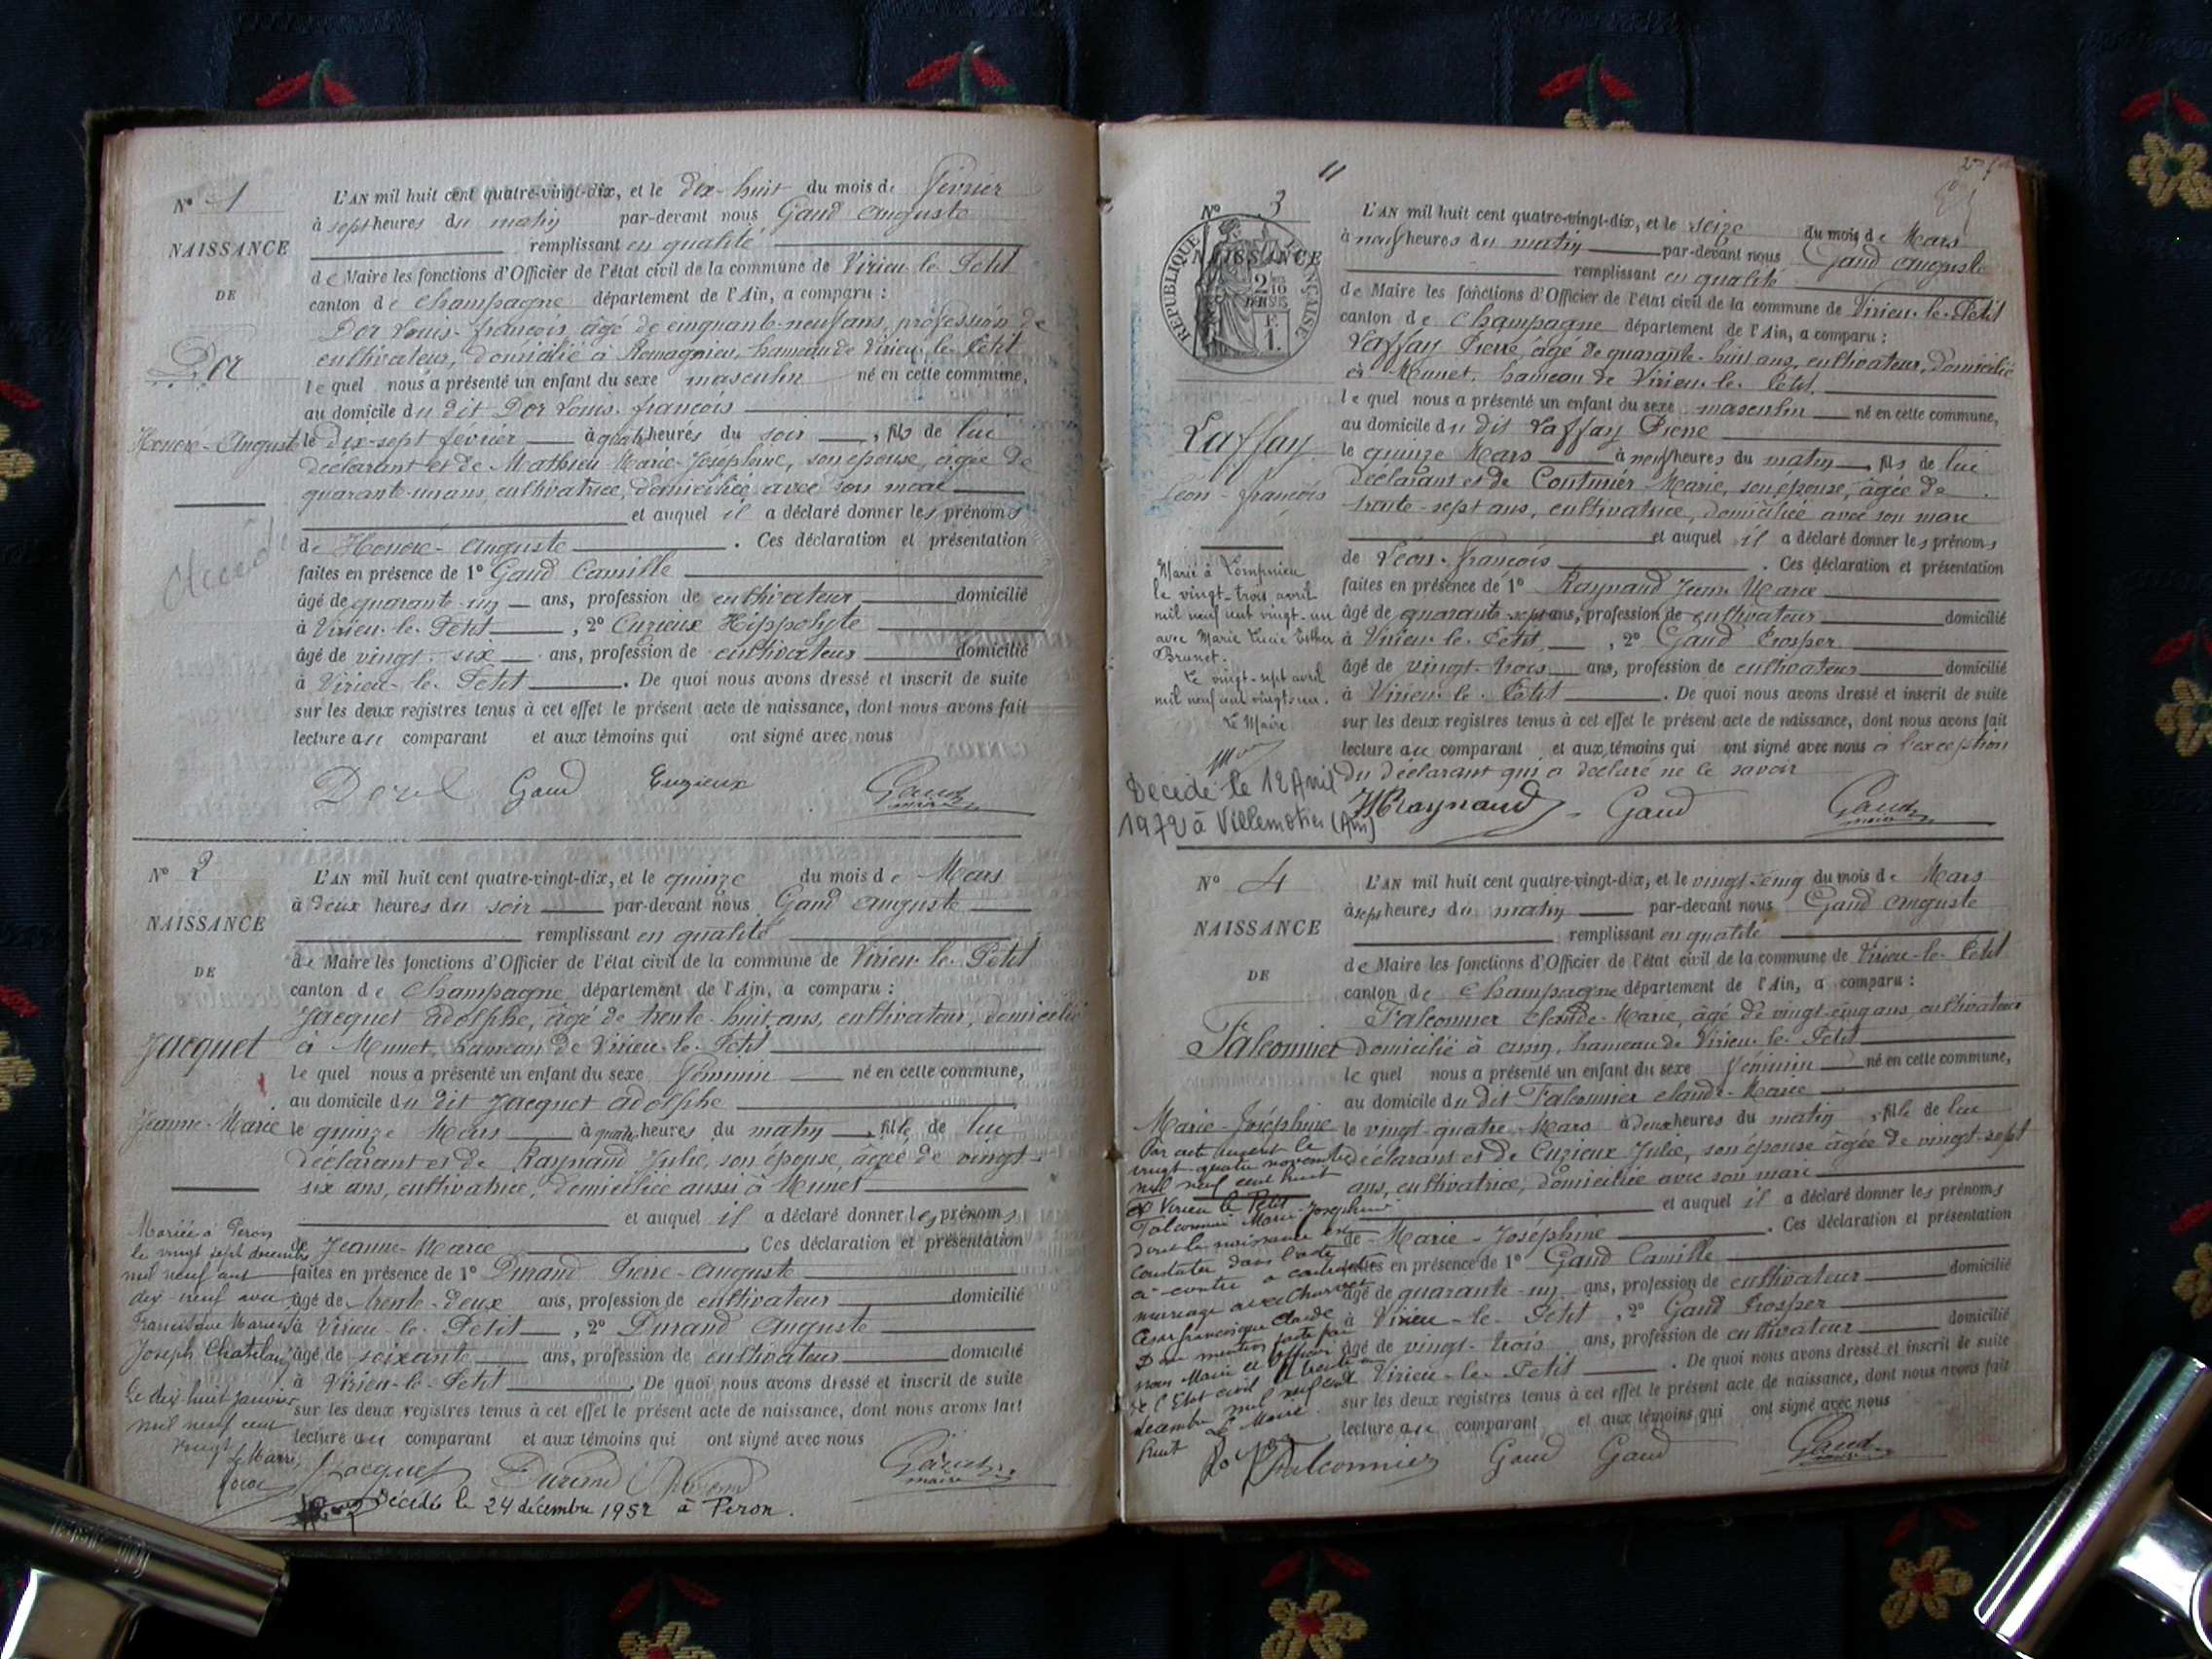 N° 1
NAISSANCE
DE
Dor
Honoré-Auguste
L'AN mil huit cent quatre-vingt-dix, et le dix-huit du mois de février
à sept heures du matin par-devant nous Gaud Auguste
remplissant en qualité
de Maire les fonctions d'Officier de l'état civil de la commune de Virieu-le-Petit
canton de Champagne département de l'Ain, a comparu :
Dor Louis-françois, âgé de cinquante-neuf ans, profession de
cultivateur, domicilié à Romagnieu, hameau de Virieu-le-Petit
lequel nous a présenté un enfant du sexe masculin né en cette commune,
au domicile du dit Dor Louis-françois
le dix-sept février à quatre heures du soir, fils de lui
déclarant et de Mathieu Marie-Joséphine, son épouse, âgée de
quarante-un ans, cultivatrice, domiciliée avec son mari
et auquel il a déclaré donner les prénoms
de Honoré-Auguste. Ces déclaration et présentation
faites en présence de 1° Gaud Camille
âgé de quarante-un ans, profession de cultivateur domicilié
à Virieu-le-Petit, 2° Cuzieux Hippolyte
âgé de vingt-six ans, profession de cultivateur domicilié
à Virieu-le-Petit. De quoi nous avons dressé et inscrit de suite
sur les deux registres tenus à cet effet le présent acte de naissance, dont nous avons fait
lecture au comparant et aux témoins qui ont signé avec nous
Gaud Cuzieux Gaud
maire
N° 2
NAISSANCE
DE
Jacquet
Jeanne-Marie
L'AN mil huit cent quatre-vingt-dix, et le quinze du mois de Mars
à deux heures du soir par-devant nous Gaud Auguste
remplissant en qualité
de Maire les fonctions d'Officier de l'état civil de la commune de Virieu-le-Petit
canton de Champagne département de l'Ain, a comparu :
Jacquet Adolphe, âgé de trente-huit ans, cultivateur, domicilié
à Munet, hameau de Virieu-le-Petit
lequel nous a présenté un enfant du sexe féminin né en cette commune,
au domicile du dit Jacquet Adolphe
le quinze Mars à quatre heures du matin, fille de lui
déclarant et de Raynaud Julie, son épouse, âgée de vingt-
six ans, cultivatrice, domiciliée aussi à Munet
et auquel il a déclaré donner les prénoms
de Jeanne-Marie. Ces déclaration et présentation
faites en présence de 1° Durand Pierre-Auguste
âgé de trente-deux ans, profession de cultivateur domicilié
à Virieu-le-Petit, 2° Durand Auguste
âgé de soixante ans, profession de cultivateur domicilié
à Virieu-le-Petit. De quoi nous avons dressé et inscrit de suite
sur les deux registres tenus à cet effet le présent acte de naissance, dont nous avons fait
lecture au comparant et aux témoins qui ont signé avec nous
Jacquet Durand Gaud
maire
Mariée à Peron
le vingt sept décembre
mil neuf cent
dix-neuf avec
Francisque Marius
Joseph Chatelain
Le dix huit janvier
mil neuf cent
vingt
Le Maire,
Décédée le 24 décembre 1952 à Peron.
11
N° 3
NAISSANCE
RÉPUBLIQUE FRANÇAISE
Laffay
Léon-françois
L'AN mil huit cent quatre-vingt-dix, et le seize du mois de Mars
à neuf heures du matin par-devant nous Gaud Auguste
remplissant en qualité
de Maire les fonctions d'Officier de l'état civil de la commune de Virieu-le-Petit
canton de Champagne département de l'Ain, a comparu :
Laffay Pierre, âgé de quarante-huit ans, cultivateur, domicilié
à Munet, hameau de Virieu-le-Petit,
lequel nous a présenté un enfant du sexe masculin né en cette commune,
au domicile du dit Laffay Pierre
le quinze Mars à neuf heures du matin, fils de lui
déclarant et de Couturier Marie, son épouse, âgée de
trente-sept ans, cultivatrice, domiciliée avec son mari
et auquel il a déclaré donner les prénoms
de Léon-françois. Ces déclaration et présentation
faites en présence de 1° Raynaud Jean-Marie
âgé de quarante-sept ans, profession de cultivateur domicilié
à Virieu-le-Petit, 2° Gaud Prosper
âgé de vingt-trois ans, profession de cultivateur domicilié
à Virieu-le-Petit. De quoi nous avons dressé et inscrit de suite
sur les deux registres tenus à cet effet le présent acte de naissance, dont nous avons fait
lecture au comparant et aux témoins qui ont signé avec nous à l'exception
du déclarant qui a déclaré ne le savoir
Raynaud Gaud Gaud
maire
Marié à Lompnieu
le vingt-trois avril
mil neuf cent vingt-un
avec Marie Lucie Esther
Brunet.
Le vingt-sept avril
mil neuf cent vingt-un.
Le Maire
Décédé le 12 Avril
1972 à Villemotier (Ain)
N° 4
NAISSANCE
DE
Falconnier
Marie-Joséphine
L'AN mil huit cent quatre-vingt-dix, et le vingt-cinq du mois de Mars
à sept heures du matin par-devant nous Gaud Auguste
remplissant en qualité
de Maire les fonctions d'Officier de l'état civil de la commune de Virieu-le-Petit
canton de Champagne département de l'Ain, a comparu :
Falconnier Claude-Marie, âgé de vingt-cinq ans, cultivateur
domicilié à Assin, hameau de Virieu-le-Petit
lequel nous a présenté un enfant du sexe féminin né en cette commune,
au domicile du dit Falconnier Claude-Marie
le vingt-quatre Mars à deux heures du matin, fille de lui
déclarant et de Cuzieux Julie, son épouse âgée de vingt-sept
ans, cultivatrice, domiciliée avec son mari
et auquel il a déclaré donner les prénoms
de Marie-Joséphine. Ces déclaration et présentation
faites en présence de 1° Gaud Camille
âgé de quarante-un ans, profession de cultivateur domicilié
à Virieu-le-Petit, 2° Gaud Prosper
âgé de vingt-trois ans, profession de cultivateur domicilié
à Virieu-le-Petit. De quoi nous avons dressé et inscrit de suite
sur les deux registres tenus à cet effet le présent acte de naissance, dont nous avons fait
lecture au comparant et aux témoins qui ont signé avec nous
Falconnier Gaud Gaud Gaud
maire
Par acte inscrit le
vingt-quatre novembre
mil neuf cent huit
à Virieu le Petit
Falconnier Marie-Joséphine
dont la naissance est
constatée dans l'acte
ci-contre a contracté
mariage avec
César francisque Claude
Dont mention faite par
nous Maire et Officier
de l'Etat civil le trente
décembre mil neuf cent
huit Le Maire